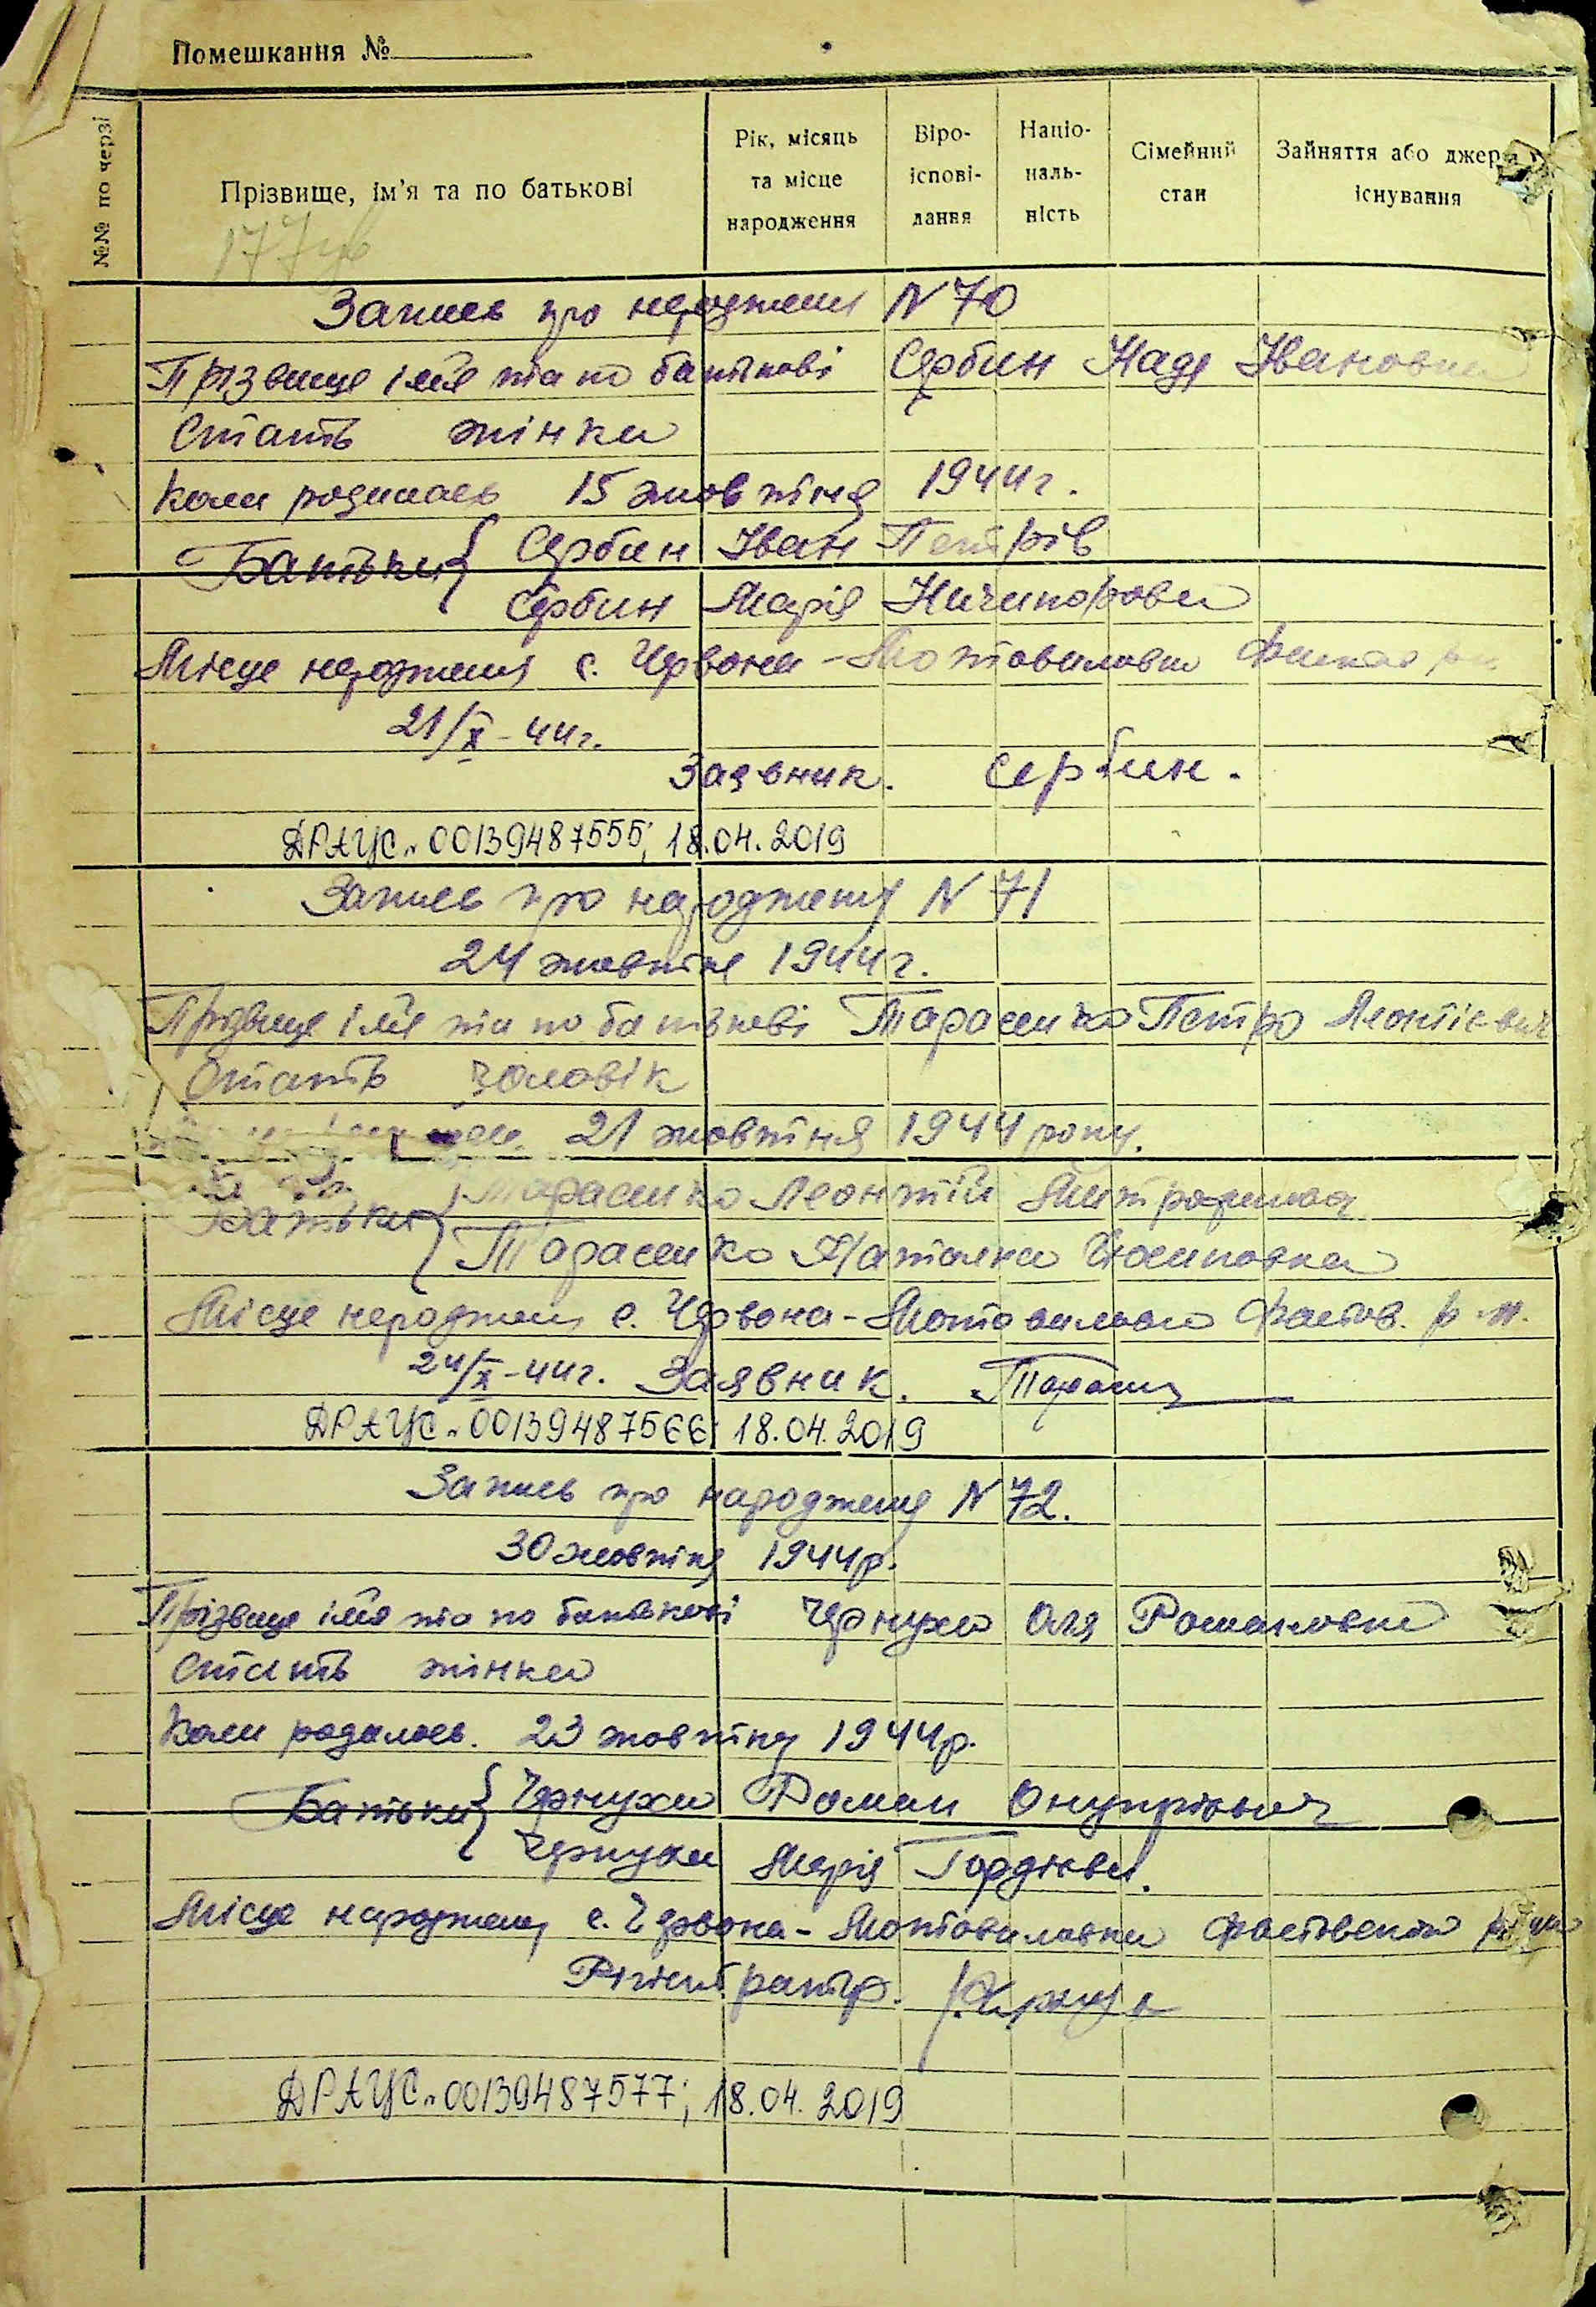 Помешкання №
№№ по черзі
Прізвище, ім'я та по батькові
Рік, місяць та місце народження
Віро- іспові- дання
Націо- наль- ність
Сімейний стан
Зайняття або джер існування
177
Запись про народженя N 70
Прізвище імя та по батькові Сербин Надя Івановна
Стать жінка
Коли родилась 15 жовтня 1944г.
Батьки { Сербин Іван Петрів
Сербин Марія Ничипорова
Місце народженя с. Червона-Мотовиловка
21/X-44г.
Заявник. Сербин.
ДРАЦС. 00139487555; 18.04.2019
Запись про народженя N 71
24 жовтня 1944г.
Прізвище імя та по батькові Тарасенко Петро Леонтієвич
Стать чоловік
21 жовтня 1944 року.
Батьки { Тарасенко Леонтій
Тарасенко Наталка
Місце народженя с. Червона-Мотовиловка Фастов. р-н.
24/X-44г. Заявник.
ДРАЦС. 00139487566; 18.04.2019
Запись про народженя N 72.
30 жовтня 1944р.
Прізвище імя та по батькові Чернуха Оля Романовна
Стать жінка
Коли родилась. 23 жовтня 1944р.
Батьки { Чернуха Роман Онупрієвич
Чернуха Марія Гордієва.
Місце народженя с. Червона-Мотовиловка Фастовского
ДРАЦС. 00139487577; 18.04.2019